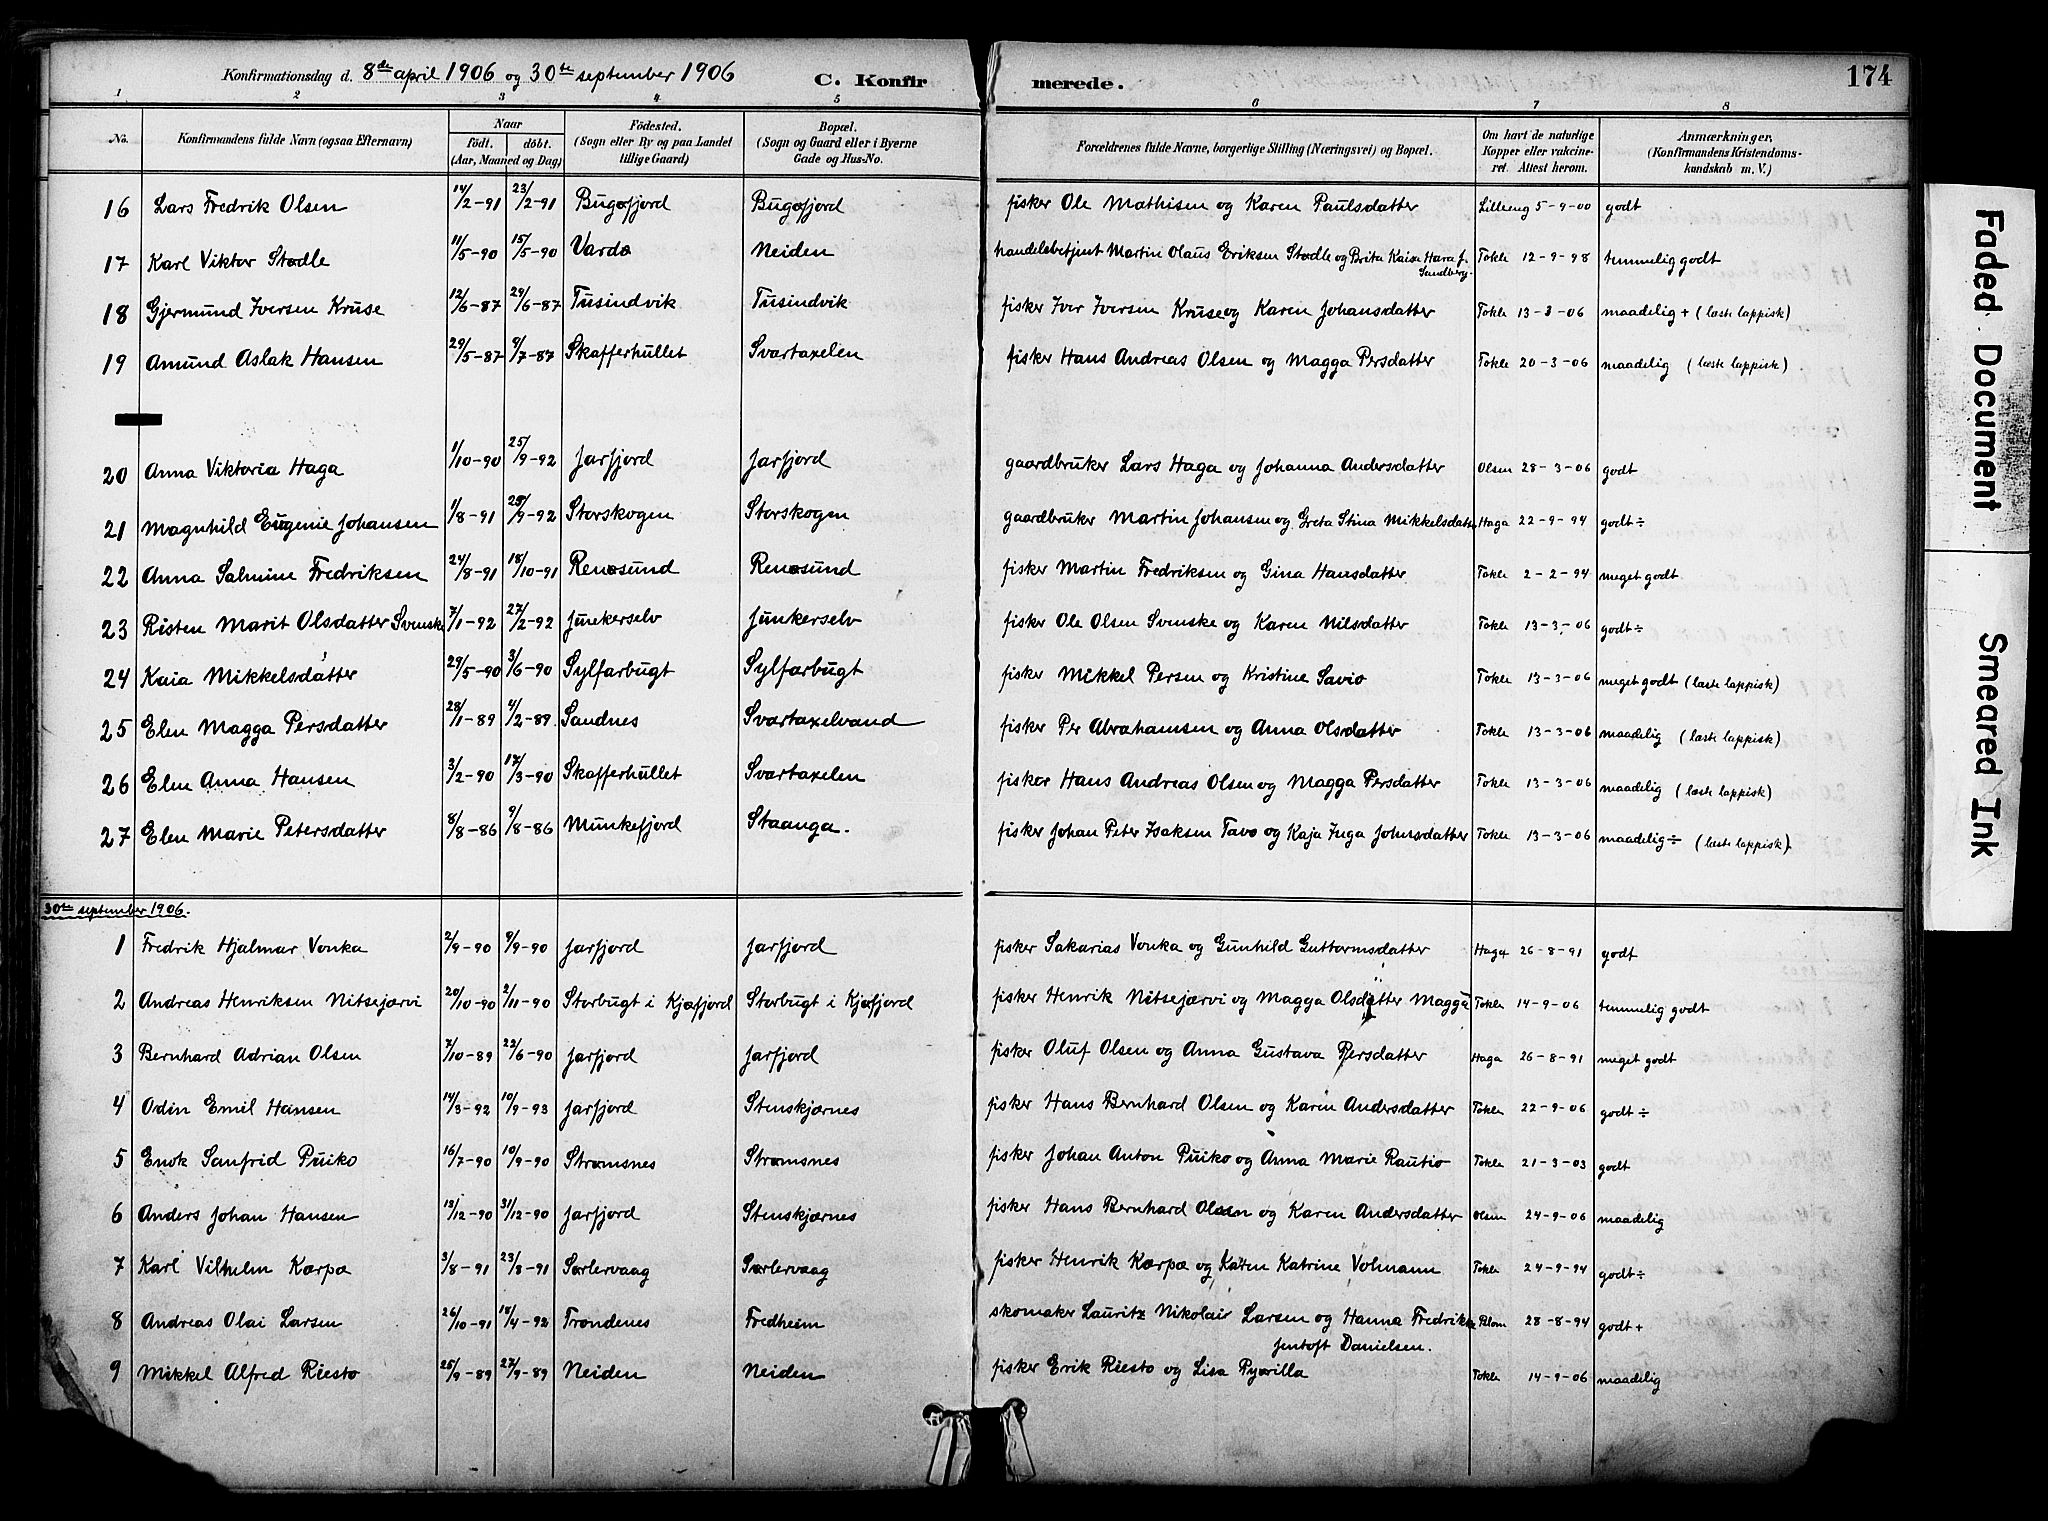 Konfirmationsdag d. 8de april 1906 og 30te september 1906 C. Konfirmerede. 174
1 2 3 4 5 6 7 8
No. Konfirmandens fulde Navn (ogsaa Efternavn) Naar født. døbt. (Aar, Maaned og Dag) Fødested. (Sogn eller By og paa Landet tillige Gaard) Bopæl. (Sogn og Gaard eller i Byerne Gade og Hus-No. Forældrenes fulde Navne, borgerlige Stilling (Næringsvei) og Bopæl. Om havt de naturlige Kopper eller vakcineret. Attest herom. Anmærkninger, (Konfirmandens Kristendomskundskab m. V.)
16 Lars Fredrik Olsen 14/2-91 23/2-91 Bugøfjord Bugøfjord fisker Ole Mathisen og Karen Paulsdatter Lilleeng 5-9-00 godt
17 Karl Viktor Stødle 11/5-90 15/5-90 Vardø Neiden handelsbetjent Martin Olaus Eriksen Stødle og Brita Kaisa Hara f. Sandberg. Tokle 12-9-98 temmelig godt
18 Gjermund Iversen Kruse 12/6-87 29/6-87 Tusindvik Tusindvik fisker Iver Iversen Kruse og Karen Johansdatter Tokle 13-3-06 maadelig + (læste lappisk)
19 Amund Aslak Hansen 29/5-87 9/7-87 Skafferhullet Svartaxelen fisker Hans Andreas Olsen og Magga Persdatter Tokle 20-3-06 maadelig (læste lappisk)
20 Anna Viktoria Haga 1/10-90 25/9-92 Jarfjord Jarfjord gaardbruker Lars Haga og Johanna Andersdatter Olsen 28-3-06 godt
21 Magnhild Eugenie Johansen 1/8-91 25/9-92 Storskogen Storskogen gaardbruker Martin Johansen og Greta Stina Mikkelsdatter Haga 22-9-94 godt ÷
22 Anna Salmine Fredriksen 24/8-91 18/10-91 Renøsund Renøsund fisker Martin Fredriksen og Gina Hansdatter Tokle 2-2-94 meget godt
23 Risten Marit Olsdatter Svenske 7/1-92 27/2-92 Junkerselv Junkerselv fisker Ole Olsen Svenske og Karen Nilsdatter Tokle 13-3-06 godt ÷
24 Kaia Mikkelsdatter 29/5-90 3/6-90 Sylfarbugt Sylfarbugt fisker Mikkel Persen og Kristine Savio Tokle 13-3-06 meget godt (læste lappisk)
25 Elen Magga Persdatter 28/1-89 4/2-89 Sandnes Svartaxelvand fisker Per Abrahamsen og Anna Olsdatter Tokle 13-3-06 maadelig (læste lappisk)
26 Elen Anna Hansen 3/2-90 17/3-90 Skafferhullet Svartaxelen fisker Hans Andreas Olsen og Magga Persdatter Tokle 13-3-06 maadelig (læste lappisk)
27 Elen Marie Petersdatter 8/8-86 9/8-86 Munkefjord Staanga. fisker Johan Peter Isaksen Tavo og Kaja Inga Johnsdatter Tokle 13-3-06 maadelig ÷ (læste lappisk)
30te september 1906.
1 Fredrik Hjalmar Vonka 2/9-90 9/9-90 Jarfjord Jarfjord fisker Sakarias Vonka og Gunhild Guttormsdatter Haga 26-8-91 godt
2 Andreas Henriksen Nitsejærvi 20/10-90 2/11-90 Storbugt i Kjøfjord Storbugt i Kjøfjord fisker Henrik Nitsejærvi og Magga Olsdatter Magga Tokle 14-9-06 temmelig godt
3 Bernhard Adrian Olsen 7/10-89 22/6-90 Jarfjord Jarfjord fisker Oluf Olsen og Anna Gustava Persdatter Haga 26-8-91 meget godt
4 Odin Emil Hansen 14/3-92 10/9-93 Jarfjord Stenskjærnes fisker Hans Bernhard Olsen og Karen Andersdatter Tokle 22-9-06 godt ÷
5 Enok Sanfrid Puiko 16/7-90 10/9-90 Strømsnes Strømsnes fisker Johan Anton Puiko og Anna Marie Rautio Tokle 21-3-03 godt
6 Anders Johan Hansen 13/12-90 31/12-90 Jarfjord Stenskjærnes fisker Hans Bernhard Olsen og Karen Andersdatter Olsen 24-9-06 maadelig
7 Karl Vilhelm Karpa 3/8-91 23/8-91 Sørlervaag Sørlervaag fisker Henrik Karpa og Karen Katrine Volmann Tokle 24-9-94 godt ÷
8 Andreas Olai Larsen 26/10-91 18/4-92 Trondenes Fredheim skomaker Lauritz Nikolai Larsen og Hanna Fredrikke Jentoft Danielsen. Blom 28-8-94 godt +
9 Mikkel Alfred Riesto 25/9-89 27/9-89 Neiden Neiden fisker Erik Riesto og Lisa Pyørilla Tokle 14-9-06 maadelig
Faded Document
Smeared Ink